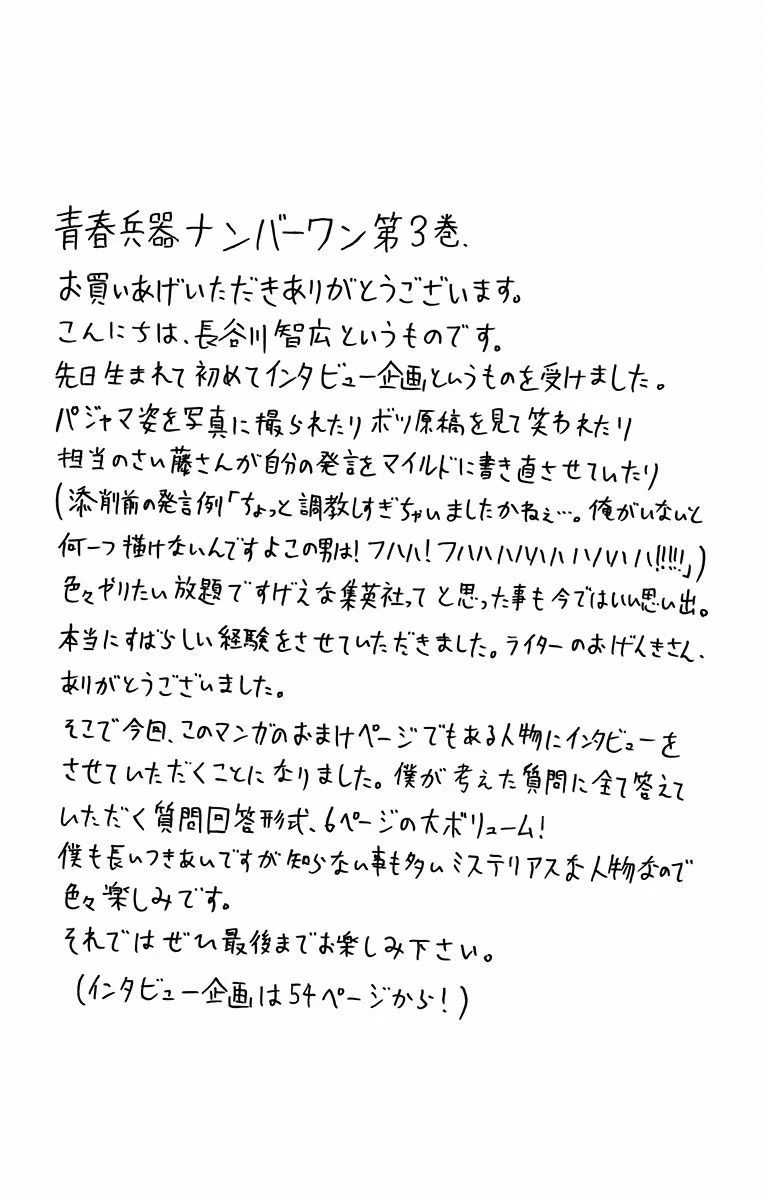 青春兵器ナンバーワン第3巻、
お買いあげいただきありがとうございます。
こんにちは、長谷川智広というものです。
先日生まれて初めてインタビュー企画というものを受けました。
パジャマ姿を写真に撮られたりボツ原稿を見て笑われたり
担当のさい藤さんが自分の発言をマイルドに書き直させていたり
(添削前の発言例「ちょっと調教しすぎちゃいましたかねぇ…。俺がいないと
何一つ描けないんですよこの男は!フハハ!フハハハハハハハハハハ!!!!!」)
色々やりたい放題ですげえな集英社ってと思った事も今ではいい思い出。
本当にすばらしい経験をさせていただきました。ライターのおげんきさん、
ありがとうございました。
そこで今回、このマンガのおまけページでもある人物にインタビューを
させていただくことになりました。僕が考えた質問に全て答えて
いただく質問回答形式、6ページの大ボリューム!
僕も長いつきあいですが知らない事も多いミステリアスな人物なので
色々楽しみです。
それではぜひ最後までお楽しみ下さい。
(インタビュー企画は54ページから!)